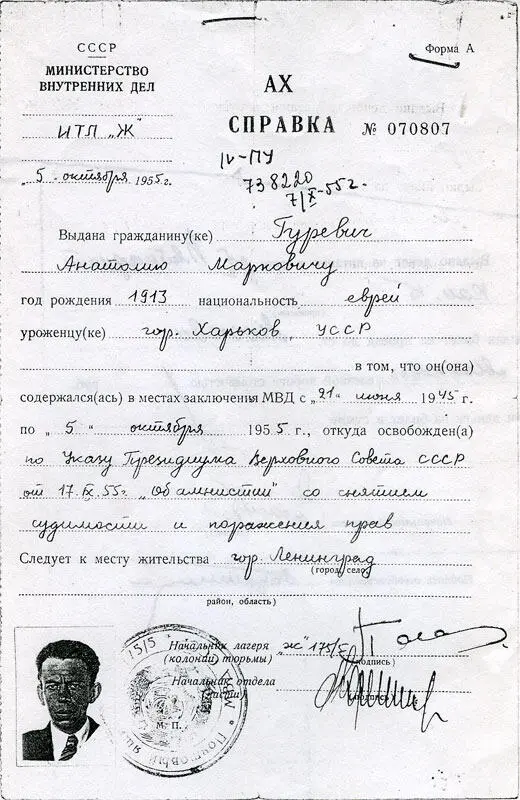 СССР
МИНИСТЕРСТВО
ВНУТРЕННИХ ДЕЛ
ИТЛ „Ж"
„5" октября 1955 г.
Форма А
АХ
СПРАВКА № 070807
IV-ПУ
738220
7/X-55 г.
Выдана гражданину(ке) Гуревич
Анатолию Марковичу
год рождения 1913 национальность еврей
уроженцу(ке) гор. Харьков, УССР
в том, что он(она)
содержался(ась) в местах заключения МВД с „21" июня 1945 г.
по „5" октября 1955 г., откуда освобожден(а)
по Указу Президиума Верховного Совета СССР
от 17.IX.55г. „Об амнистии" со снятием
судимости и поражения прав
Следует к месту жительства гор. Ленинград
(город, село,
район, область)
Начальник лагеря „Ж" 175/
(колонии) тюрьмы)
(подпись)
Начальник отдела
(части)
(подпись)
М. П.
Почтовый